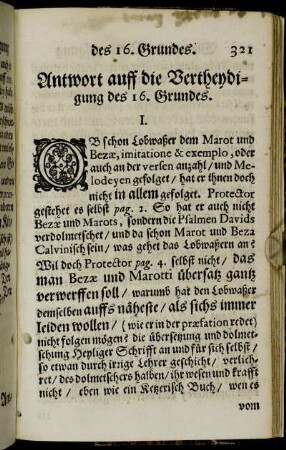 des 16. Grundes. 321
Antwort auff die Vertheydi-
gung des 16. Grundes.
I.
OB schon Lobwaßer dem Marot und
Bezæ, imitatione & exemplo, oder
auch an der versen anzahl / und Me-
lodeyen gefolget / hat er ihnen doch
nicht in allem gefolget. Protector
gestehet es selbst pag. 1. So hat er auch nicht
Bezæ und Marots, sondern die Psalmen Davids
verdolmetschet / und da schon Marot und Beza
Calvinisch sein / was gehet das Lobwaßern an?
Wil doch Protector pag. 4. selbst nicht / das
man Bezæ und Marotti übersatz gantz
verwerffen soll / warumb hat den Lobwaßer
demselben auffs näheste / als sichs immer
leiden wollen / (wie er in der præfation redet)
nicht folgen mögen? die übersetzung und dolmet-
schung Heyliger Schrifft an und für sich selbst /
so etwan durch irrige Lehrer geschicht / verlich-
ret / des dolmetschers halben / ihr wesen und krafft
nicht / eben wie ein Ketzerisch Buch / wen es
vom